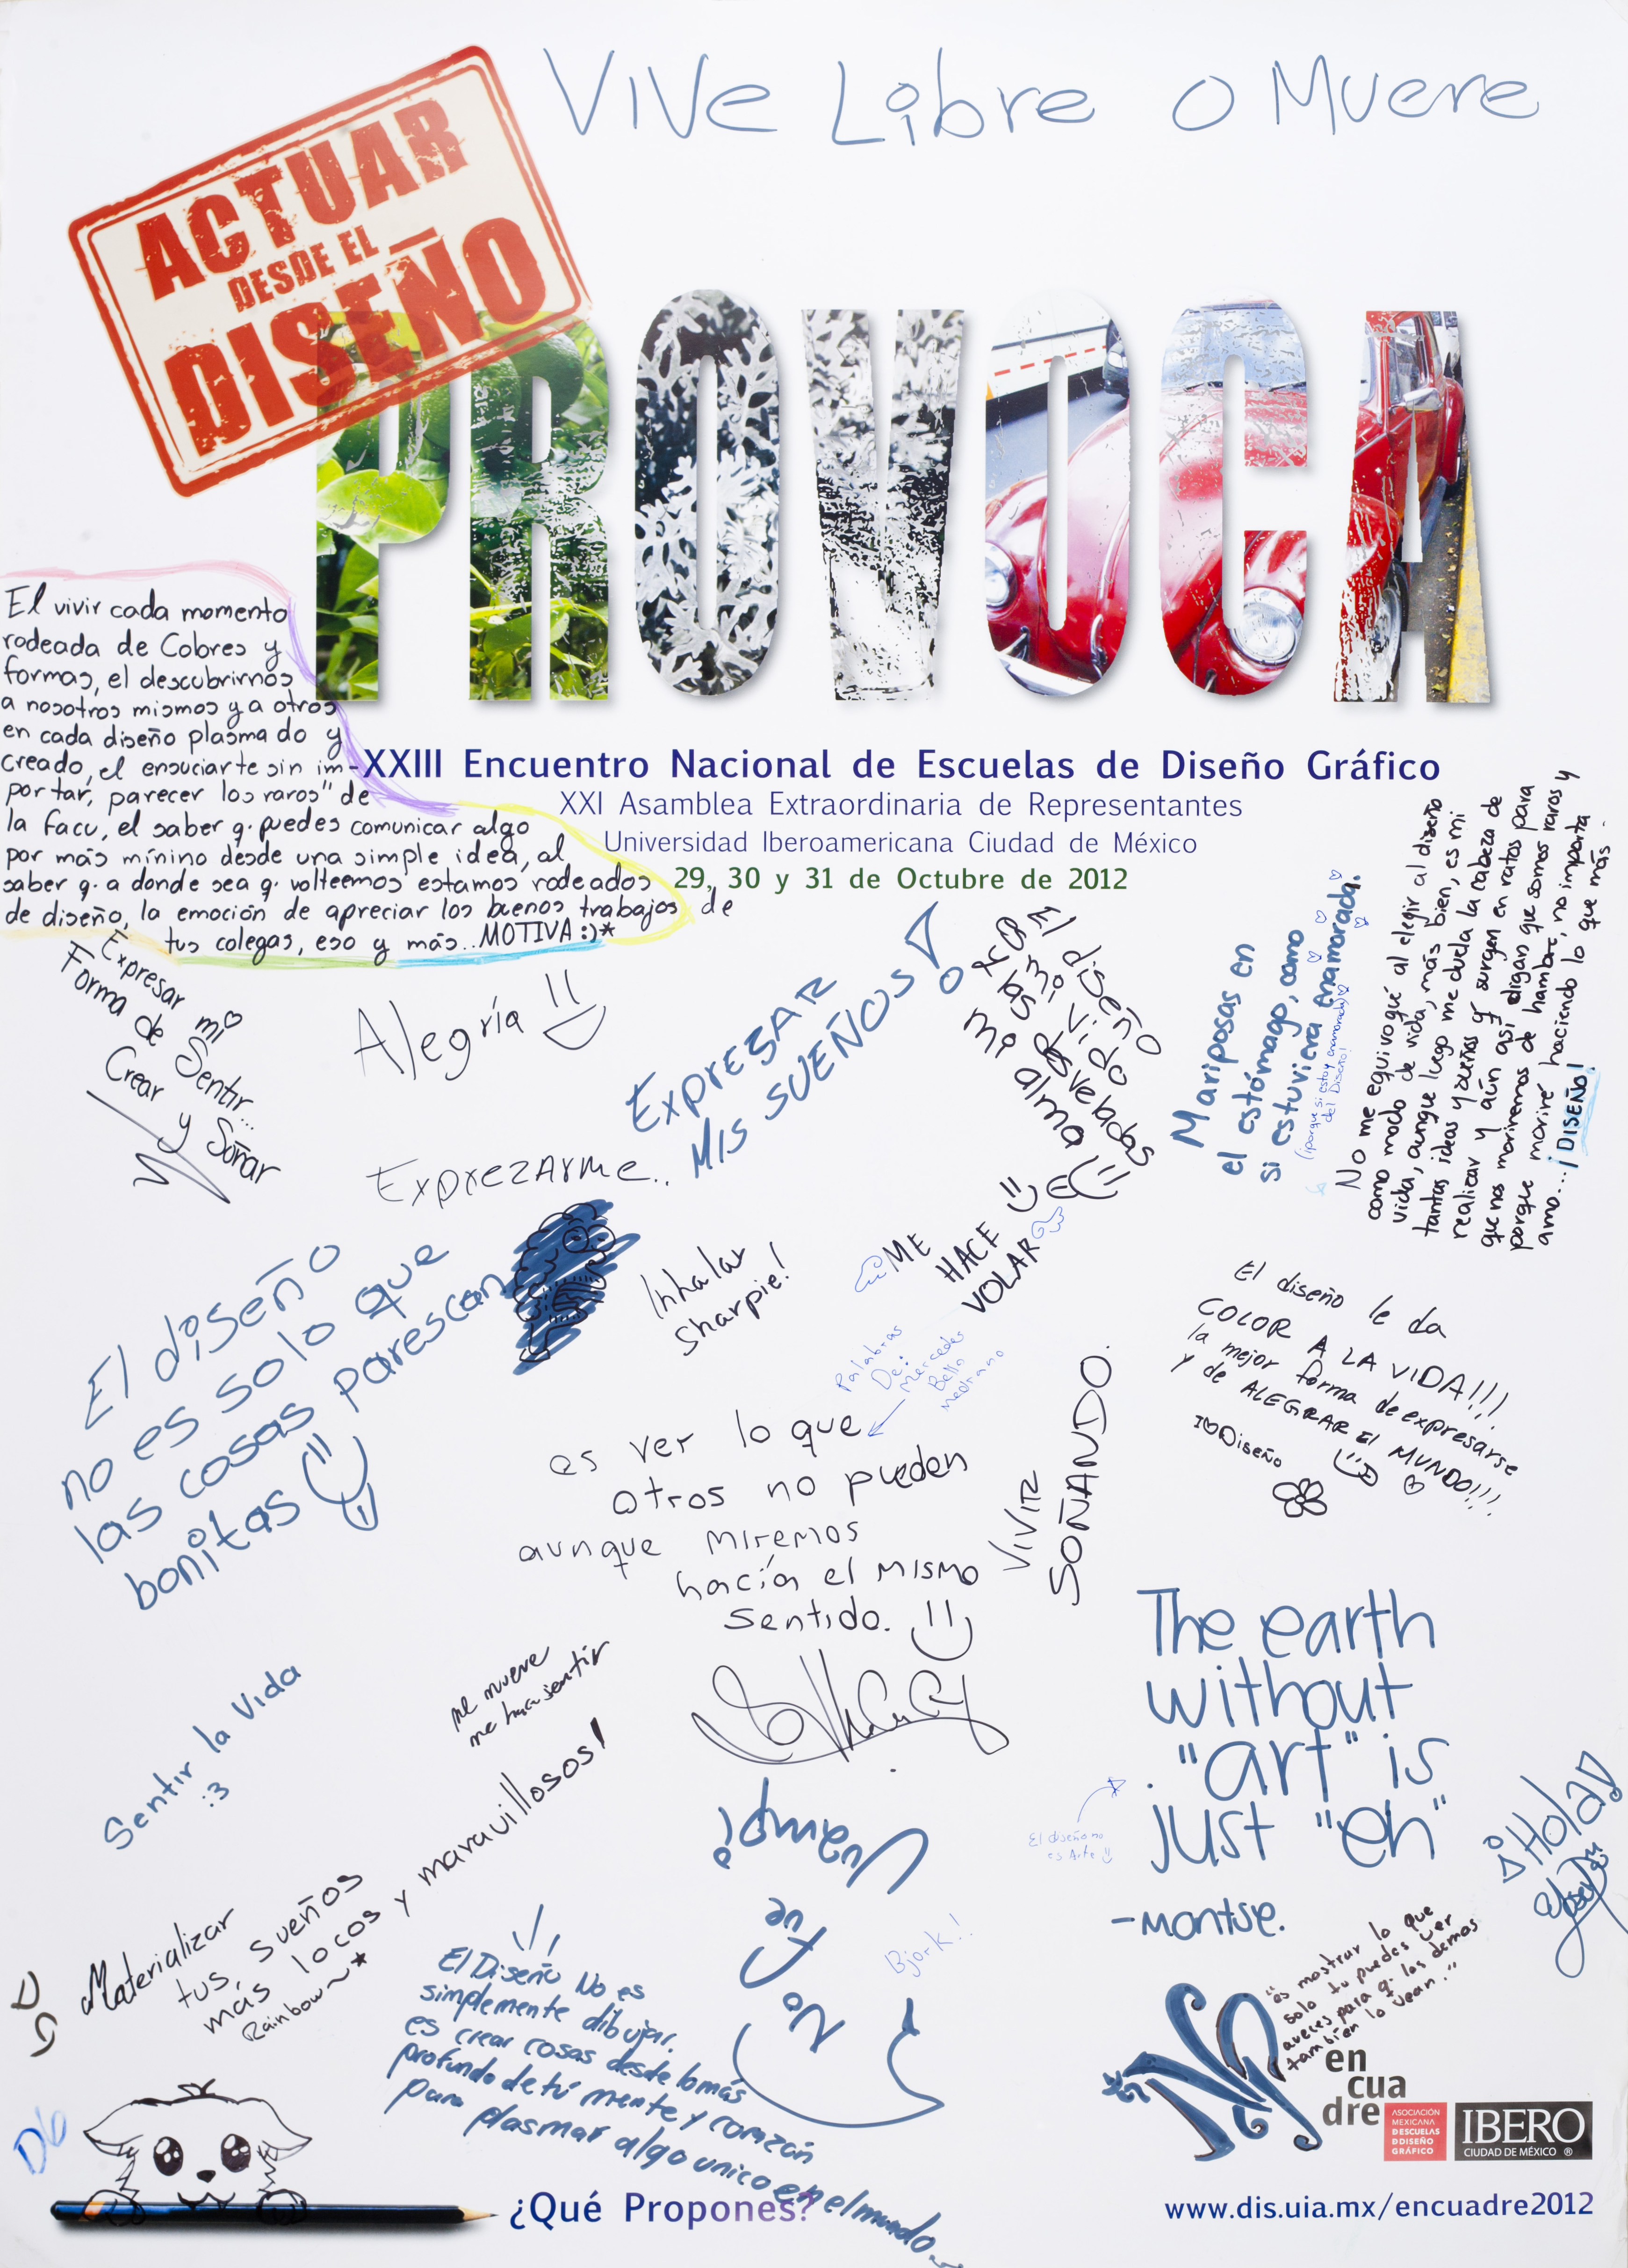 Vive Libre o Muere
ACTUAR
DESDE EL
DISEÑO
PROVOCA
XXIII Encuentro Nacional de Escuelas de Diseño Gráfico
XXI Asamblea Extraordinaria de Representantes
Universidad Iberoamericana Ciudad de México
29, 30 y 31 de Octubre de 2012
El vivir cada momento
rodeada de Colores y
formas, el descubrirnos
a nosotros mismos y a otros
en cada diseño plasmado y
creado, el ensuciarte sin im-
portar, parecer los raros" de
la facu, el saber q. puedes comunicar algo
por más mínino desde una simple idea, al
saber q. a donde sea q. volteemos estamos rodeados
de diseño, la emoción de apreciar los buenos trabajos de
tus colegas, eso y más.. MOTIVA :)*
Expresar mi
Forma de Sentir...
Crear y Soñar
Alegría
EXPRESAR
MIS SUEÑOS!
El diseño
ha sido
mi alma
Mariposas en
el estómago, como
si estuviera enamorada.
(porque si estoy enamorada)
del Diseño!
No me equivoqué al elegir al diseño
como modo de vida, más bien, es mi
vida, aunque luego me duela la cabeza de
tantas ideas y sueños q' surgen en ratos para
realizar y aún así digan que somos raros y
que nos moriremos de hambre, no importa
porque moriré haciendo lo que más
amo...¡DISEÑO!
Exprezarme..
El diseño
no es solo que
las cosas parescan
bonitas
Inhalar
sharpie!
ME
HACE
VOLAR
Palabras
De:
Mercedes
Bello
Medrano
es ver lo que
otros no pueden
aunque miremos
hacía el mismo
sentido.
VIVIR
SOÑANDO.
El diseño le da
COLOR A LA VIDA!!!
la mejor forma de expresarse
y de ALEGRAR El MUNDO!!!
I Diseño
The earth
without
"art" is
just "eh"
-Montse.
El diseño no
es Arte
¡Hola!
Sentir la Vida
:3
me mueve
me hace sentir
Materializar
tus, sueños
más locos y maravillosos!
Rainbow~*
DG
DG
El Diseño No es
simplemente dibujar.
es crear cosas desde lo más
profundo de tú mente y corazón
para plasmar algo unico en el mundo..
No
Fue
Bjork!!
"es mostrar lo que
solo tu puedes ver
aveces para q. los demas
también lo vean."
en
cua
dre
ASOCIACIÓN
MEXICANA
DESCUELAS
DDISEÑO
GRÁFICO
IBERO
CIUDAD DE MÉXICO ®
¿Qué Propones?
www.dis.uia.mx/encuadre2012